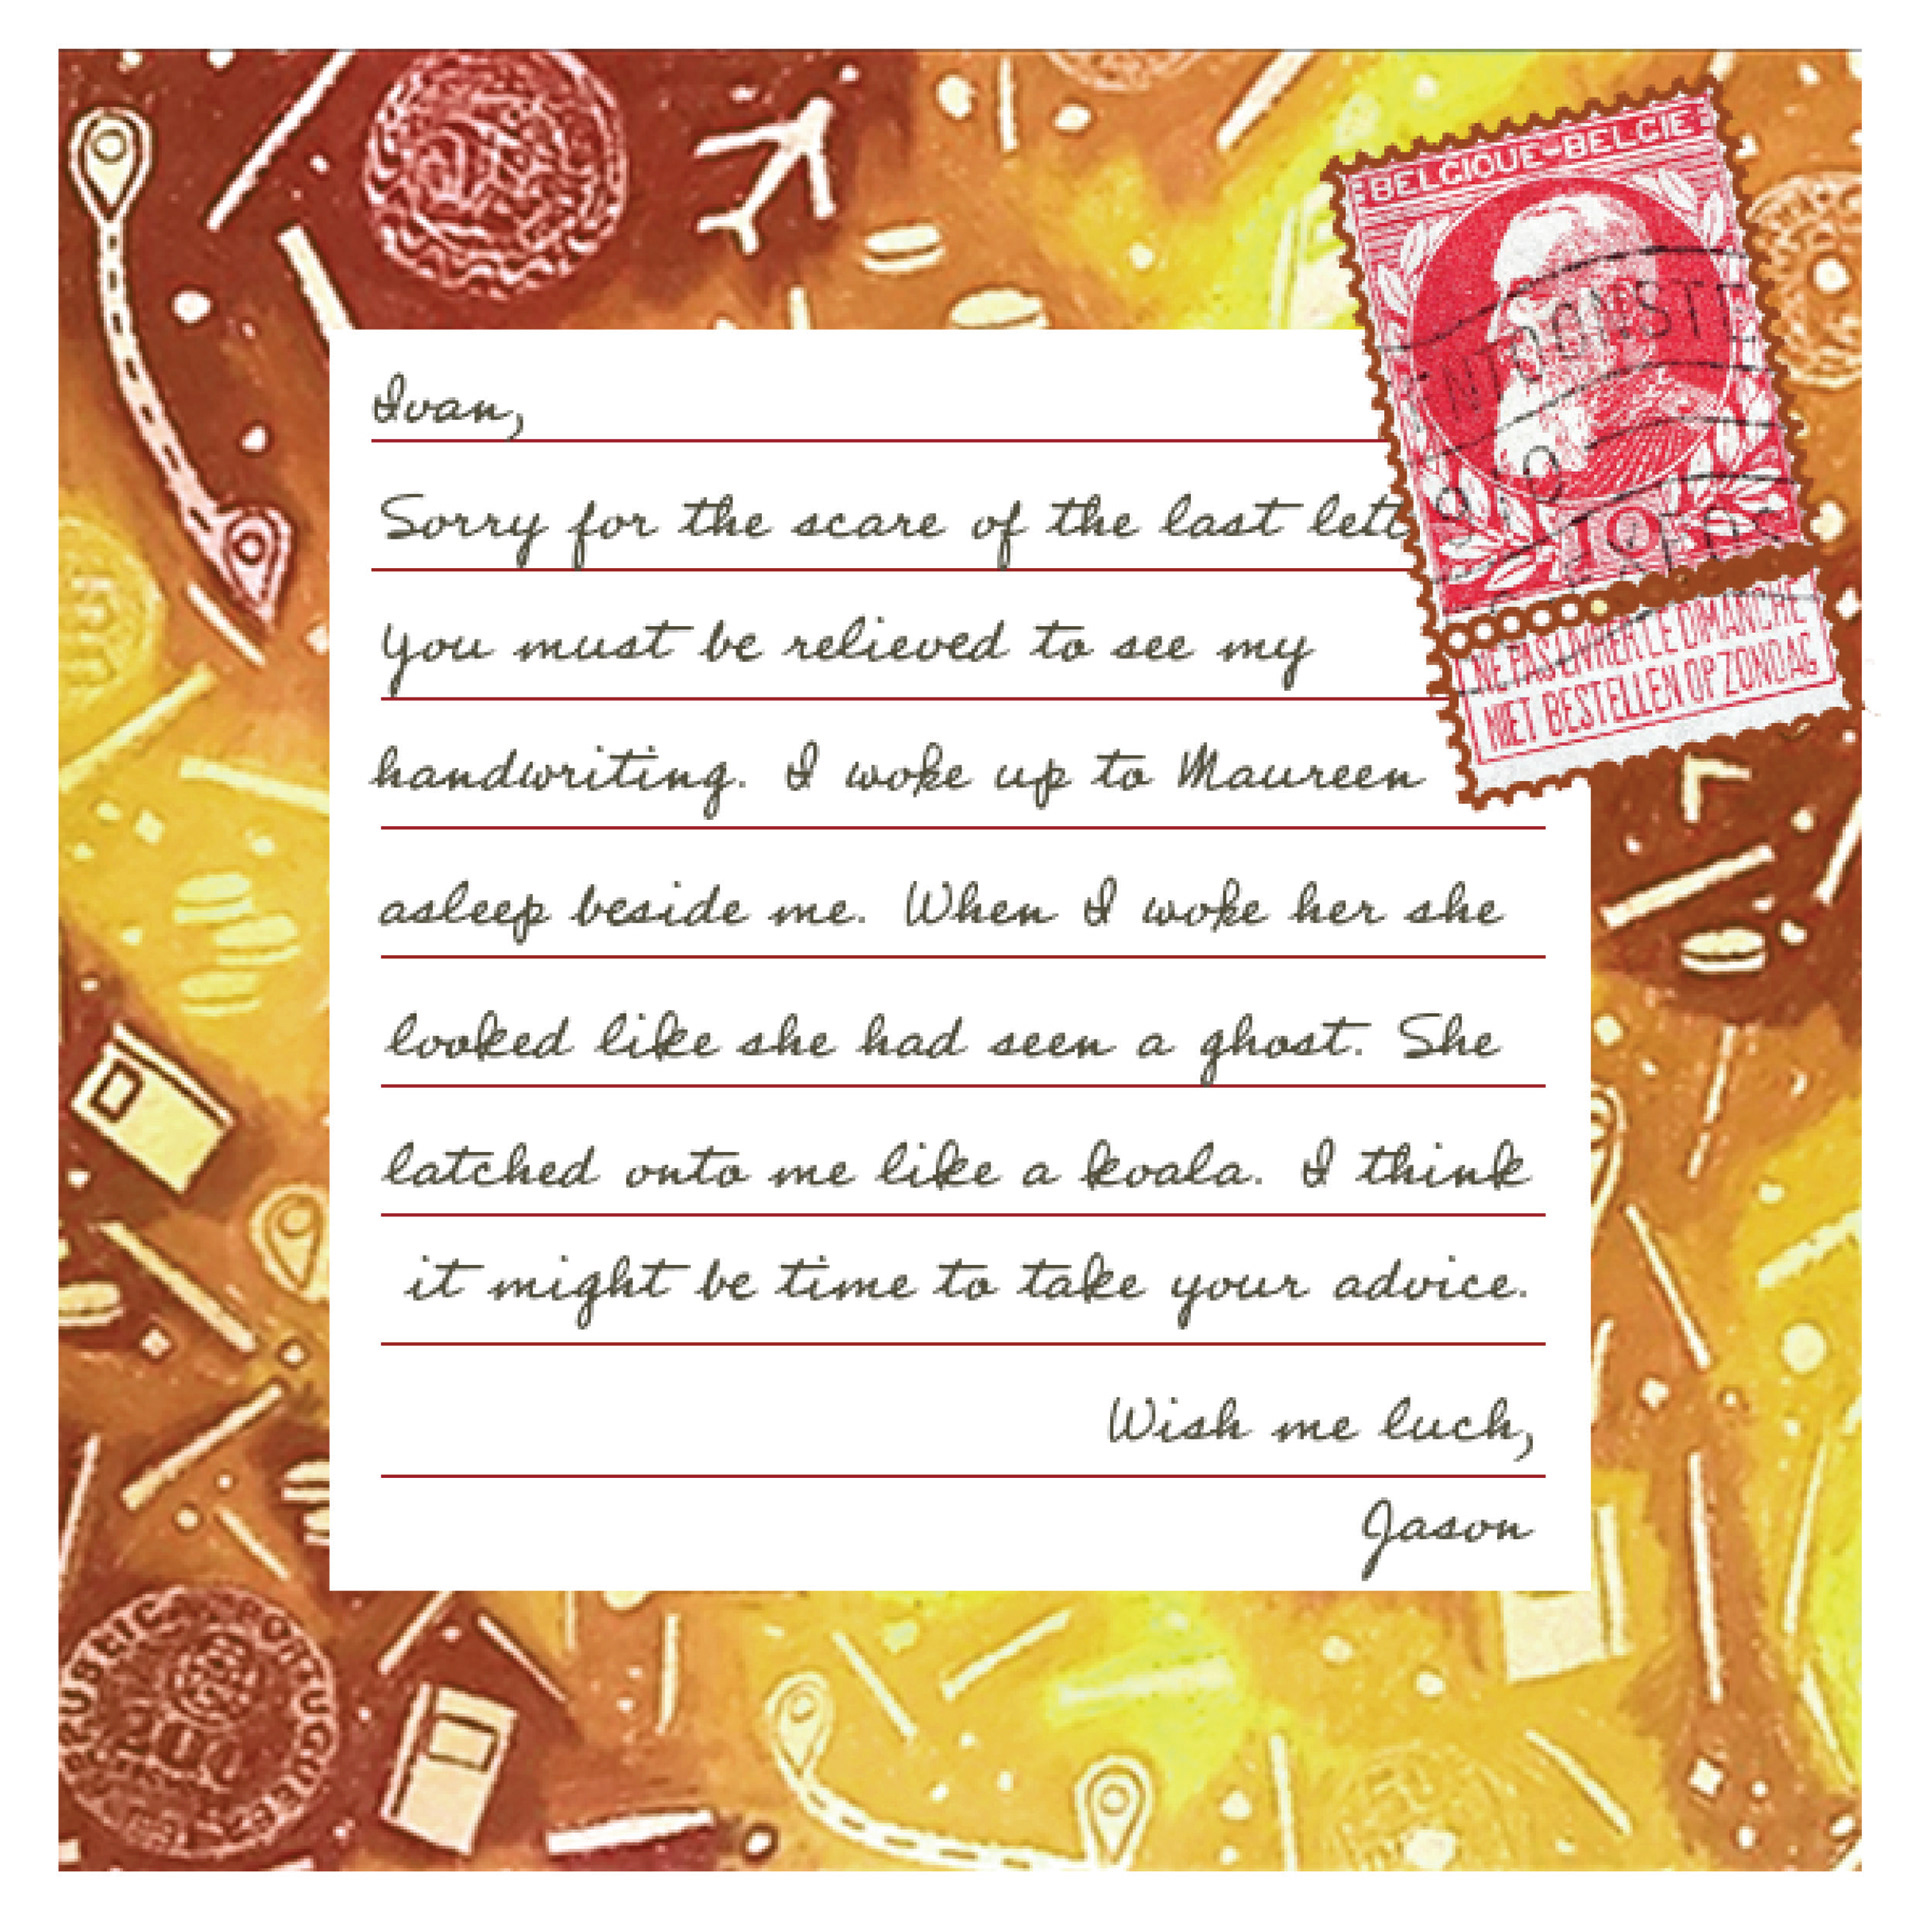 BELGIQUE-BELGIE
10
NE PAS LIVRER LE DIMANCHE
NIET BESTELLEN OP ZONDAG
Ivan,
Sorry for the scare of the last lett
You must be relieved to see my
handwriting. I woke up to Maureen
asleep beside me. When I woke her she
looked like she had seen a ghost. She
latched onto me like a koala. I think
it might be time to take your advice.
Wish me luck,
Jason